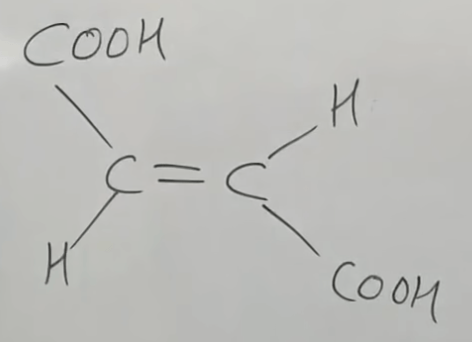 COOH
H
C=C
H
COOH